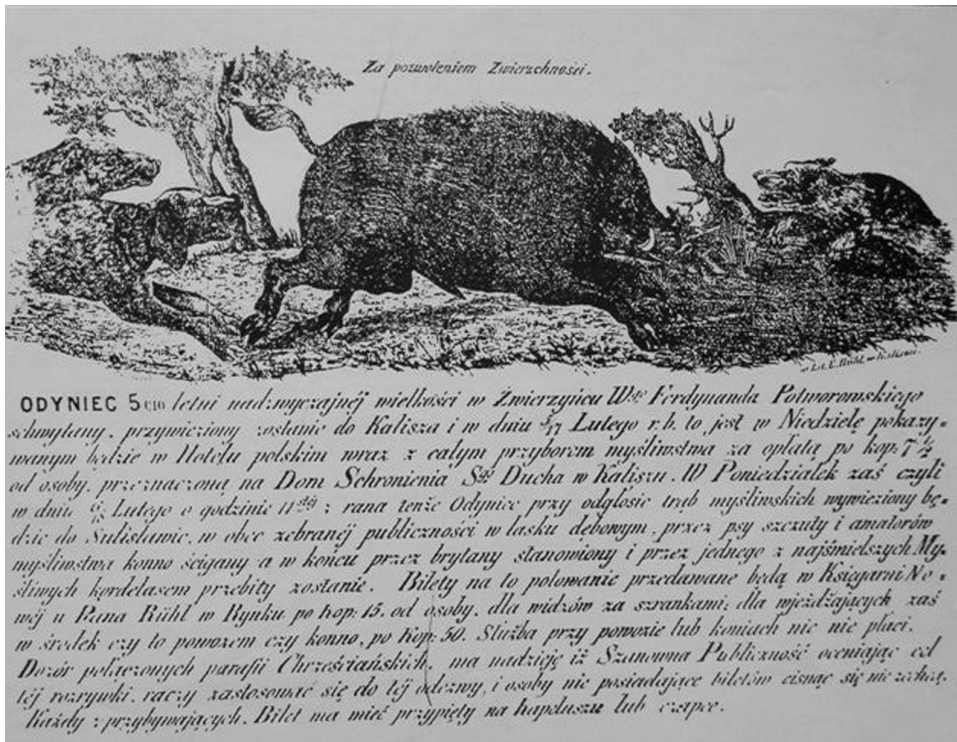 Za pozwoleniem Zwierzchności.
w Lit. L. Rühl, w Kaliszu.
ODYNIEC 5cio letni nadzwyczajnéj wielkości w Zwierzyńcu Wgo Ferdynanda Potworowskiego
schwytany, przywieziony zostanie do Kalisza i w dniu 5/17 Lutego r.b. to jest w Niedzielę pokazy-
wanym będzie w Hotelu polskim wraz z całym przyborem myśliwstwa za opłatą po kop: 7 1/2
od osoby, przeznaczoną na Dom Schronienia Sgo Ducha w Kaliszu. W Poniedziałek zaś czyli
w dniu Lutego o godzinie 11stéj z rana tenże Odyniec przy odgłosie trąb myśliwskich wywieziony bę-
dzie do Sulisławic, w obec zebranéj publiczności w lasku dębowym, przez psy szczuty i amatorów
myśliwstwa konno ścigany a w końcu przez brytany stanowiony i przez jednego z najśmielszych My-
śliwych kordelasem przebity zostanie. Bilety na to polowanie przedawane będą w Księgarni No-
wéj u Pana Rühl w Rynku, po kop: 15. od osoby, dla widzów za szrankami; dla wjeżdżających zaś
w środek czy to powozem czy konno, po Kop: 50. Służba przy powozie lub koniach nic nie płaci.
Dozór połączonych parafii Chrześciańskich, ma nadzieję iż Szanowna Publiczność oceniając cel
téj rozrywki, raczy zastosować się do téj odezwy, i osoby nie posiadające biletów cisnąć się nie zechcą.
Każdy z przybywających, Bilet ma mieć przypięty na kapeluszu lub czapce.